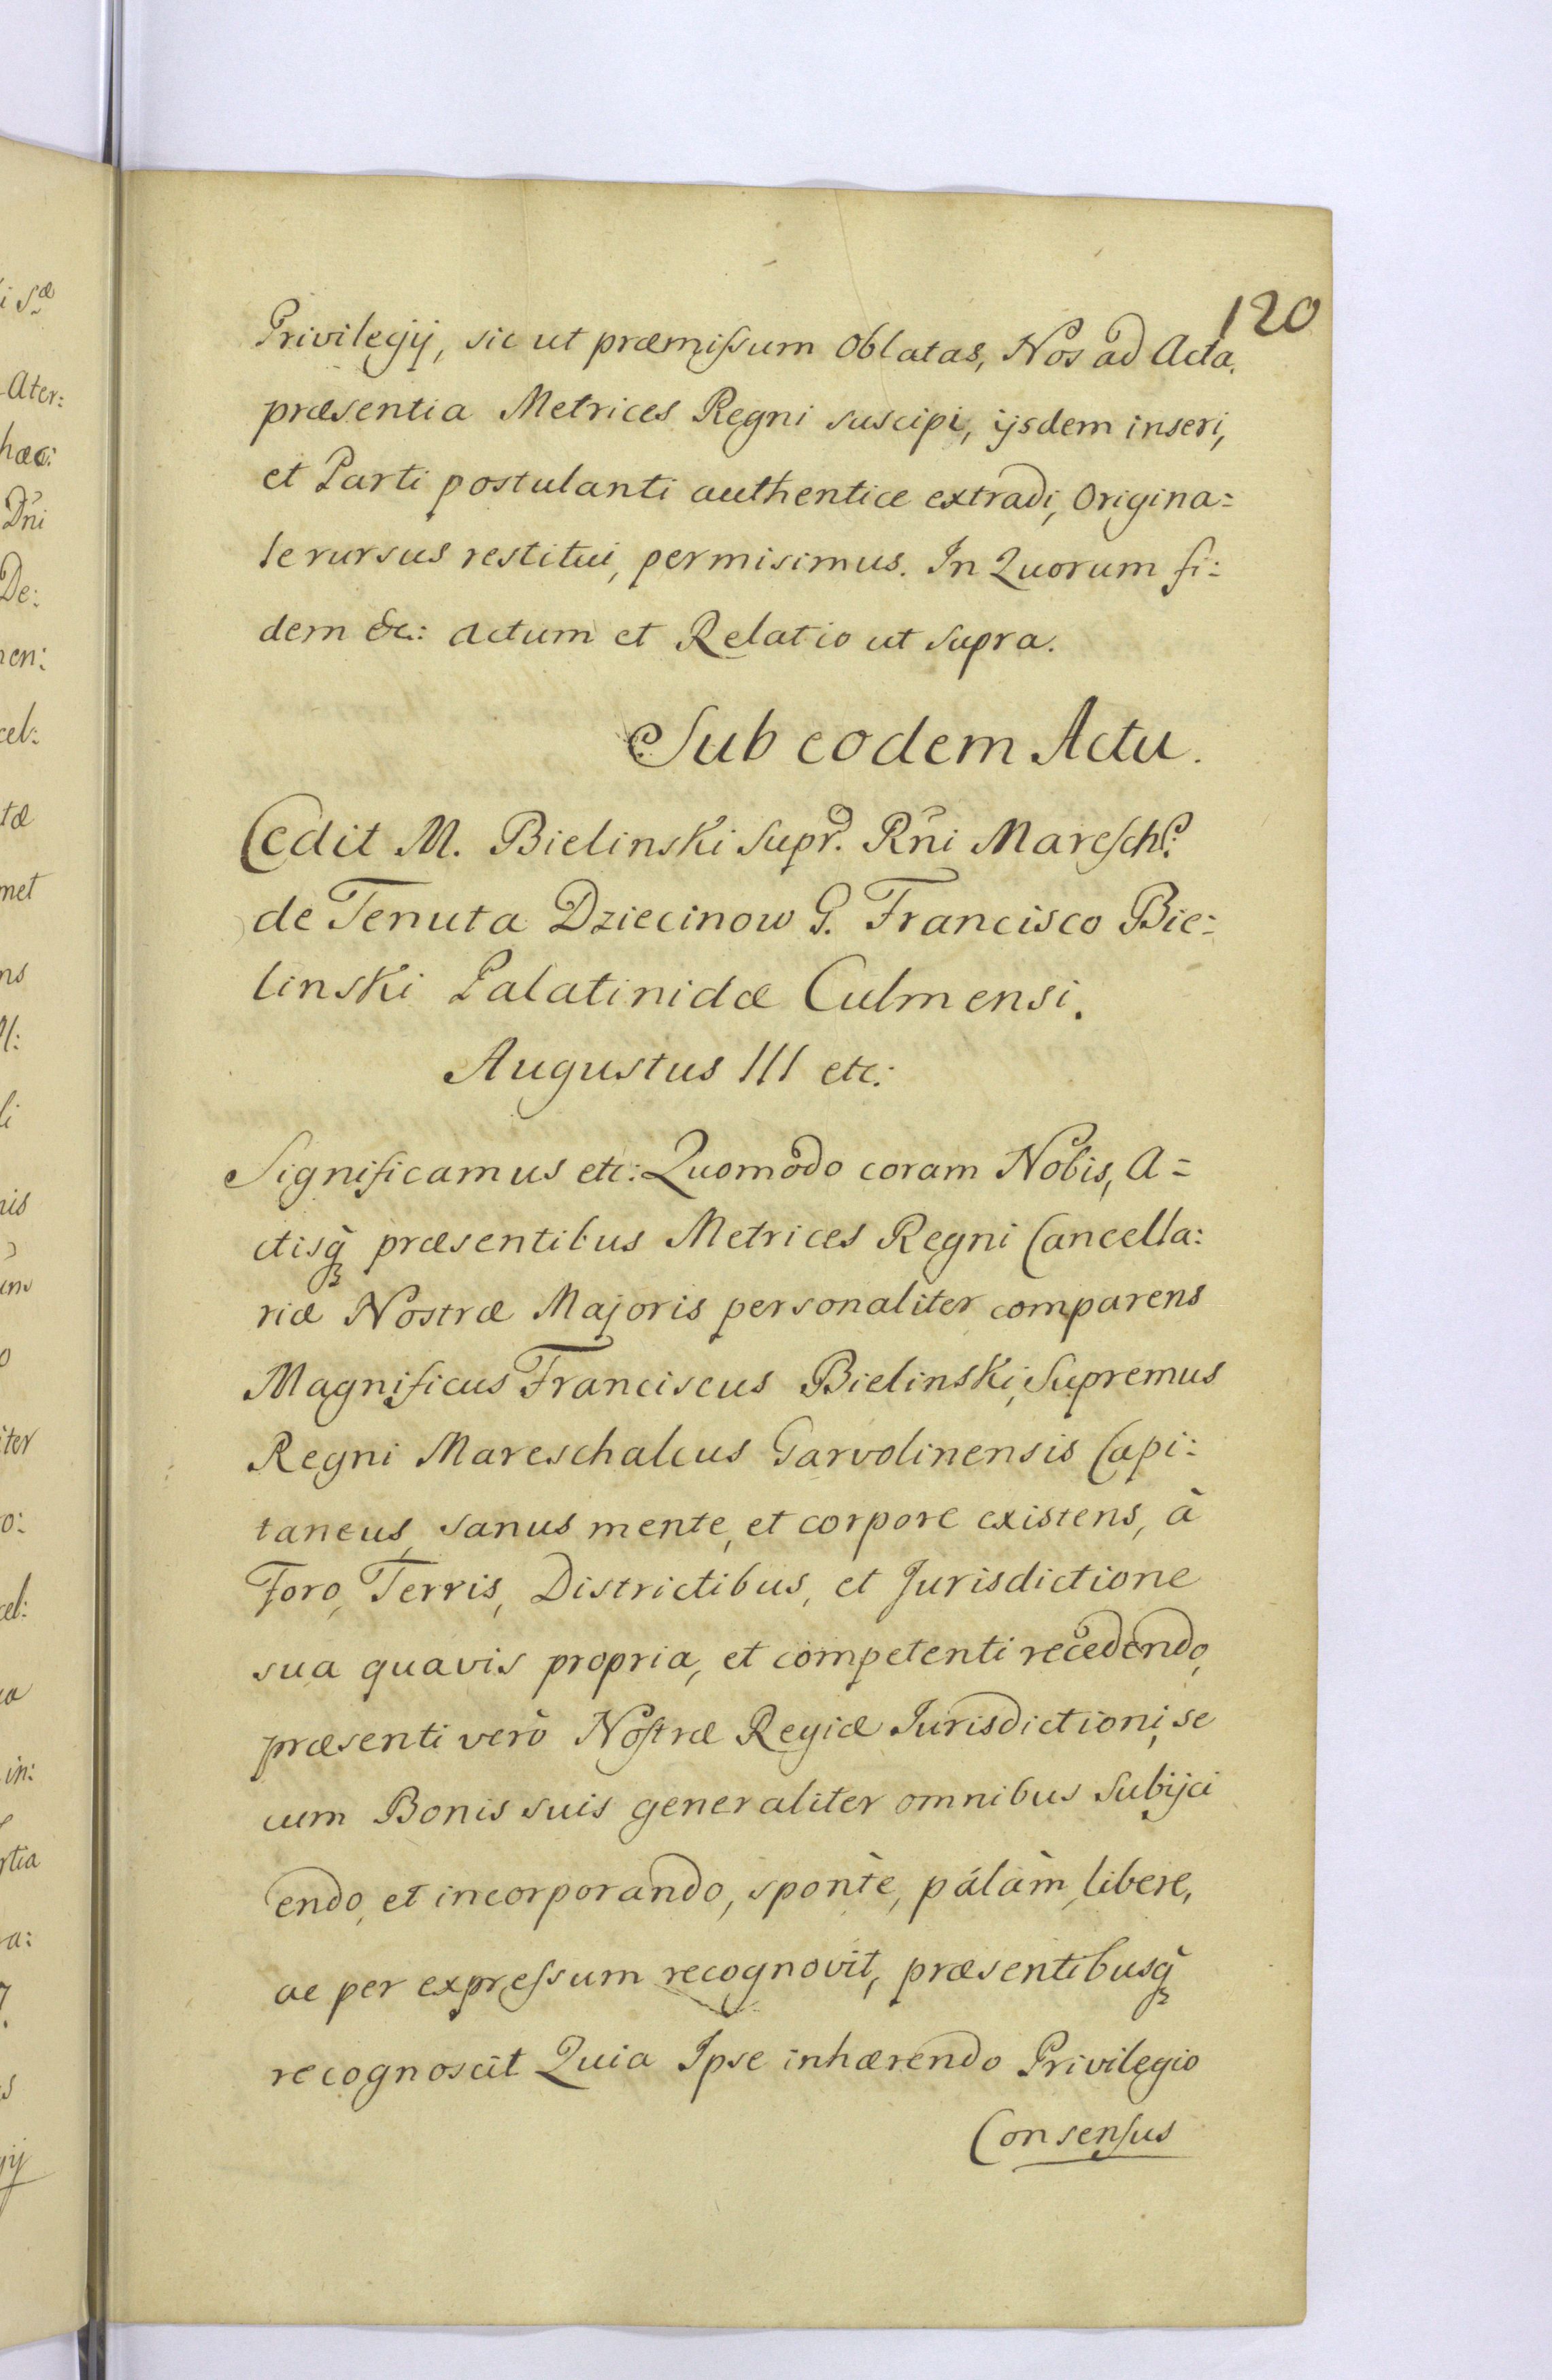 120
Privilegij, sic ut præmissum oblatas, Nos ad Acta
præsentia Metrices Regni suscipi, ijsdem inseri,
et Parti postulanti authentice extradi, Origina=
le rursus restitui, permisimus. In Quorum fi:
dem &c: actum et Relatio ut supra.
Sub eodem Actu.
Cedit M. Bielinski Supr. Rni Maresch:
de Tenuta Dziecinow G. Francisco Bie:
linski Palatinidæ Culmensi.
Augustus III etc:
Significamus etc: Quomodo coram Nobis, A=
ctisq præsentibus Metrices Regni Cancella:
riæ Nostræ Majoris personaliter comparens
Magnificus Franciscus Bielinski, Supremus
Regni Mareschalcus Garvolinensis Capi:
taneus, sanus mente, et corpore existens, à
Foro, Terris, Districtibus, et Jurisdictione
sua quavis propria, et competenti recedendo,
præsenti verò Nostræ Regiæ Jurisdictioni, se
cum Bonis suis generaliter omnibus Subijci
endo, et incorporando, spontè, pálàm, libere,
ac per expressum recognovit, præsentibusq
recognoscit Quia Ipse inhærendo Privilegio
Consensus